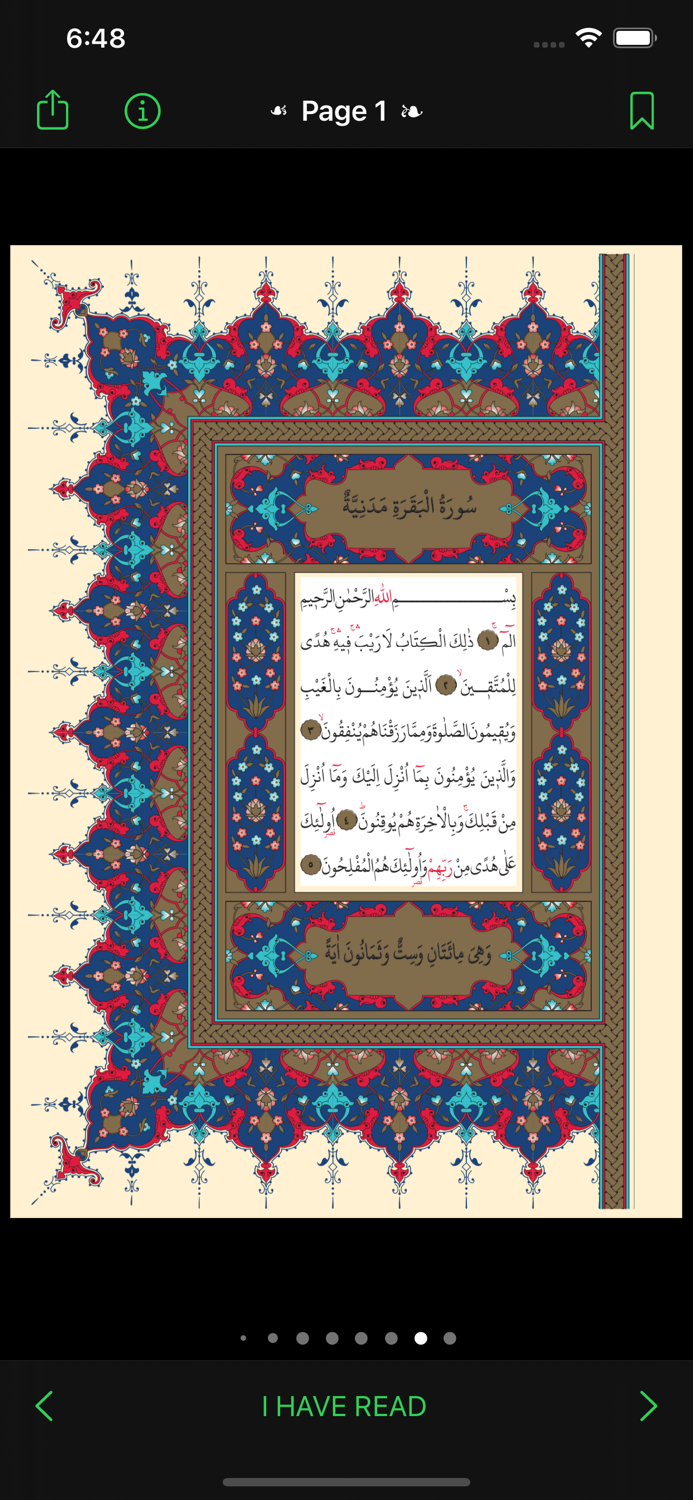 6:48
☙ Page 1 ❧
سُورَةُ الْبَقَرَةِ مَدَنِيَّةٌ
بِسْــــــــــــــــــمِ اللّٰهِ الرَّحْمٰنِ الرَّحٖيمِ
الٓمٓ ۚ ﴿١﴾ ذٰلِكَ الْكِتَابُ لَا رَيْبَ ۚۛ فٖيهِ ۚۛ هُدًى
لِلْمُتَّقٖــينَ ۙ ﴿٢﴾ اَلَّذٖينَ يُؤْمِنُـــونَ بِالْغَيْبِ
وَيُقٖيمُونَ الصَّلٰوةَ وَمِمَّا رَزَقْنَاهُمْ يُنْفِقُونَ ۙ ﴿٣﴾
وَالَّذٖينَ يُؤْمِنُونَ بِمَٓا اُنْزِلَ اِلَيْكَ وَمَٓا اُنْزِلَ
مِنْ قَبْلِكَ ۚ وَبِالْاٰخِرَةِ هُمْ يُوقِنُونَ ۜ ﴿٤﴾ اُو۬لٰٓئِكَ
عَلٰى هُدًى مِنْ رَبِّهِمْ وَاُو۬لٰٓئِكَ هُمُ الْمُفْلِحُونَ ﴿٥﴾
وَهِىَ مِائَتَانِ وَسِتٌّ وَثَمَانُونَ اٰيَةً
I HAVE READ